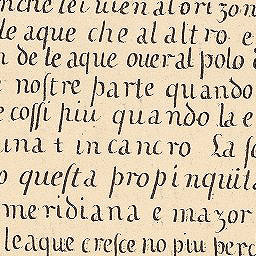 nche lei uien al ori zon
le aque che al altro e
n de le aque oueral polo
nostre parte quando
e cossi piu quando la e
una t in cancro La
o questa propinquita
meridiana e mazor
le aque cresce no piu perc